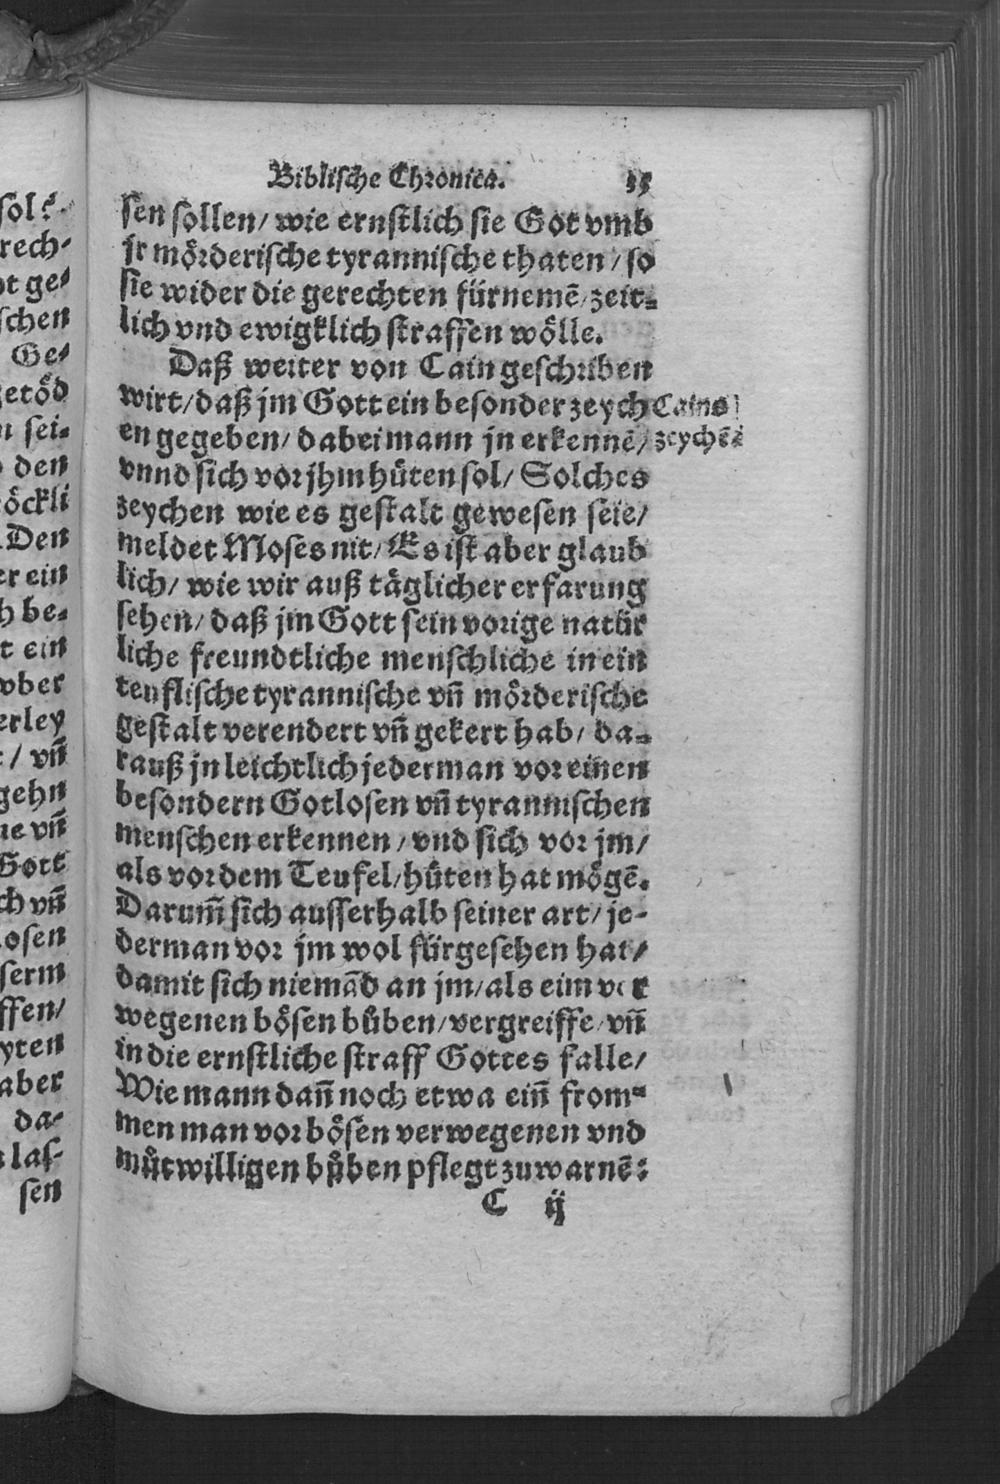 Biblische Chronica. 15
sen sollen/ wie ernstlich sie Got vmb
jr mörderische tyrannische thaten/ so
sie wider die gerechten fürnemē/ zeit-
lich vnd ewigklich straffen wölle.
Daß weiter von Cain geschriben
wirt/ daß jm Gott ein besonder zeych
Cains
en gegeben/ dabei mann jn erkennē/
zeychē
vnnd sich vor jhm hüten sol/ Solches
zeychen wie es gestalt gewesen seie/
meldet Moses nit/ Es ist aber glaub
lich/ wie wir auß täglicher erfarung
sehen/ daß jm Gott sein vorige natür
liche freundtliche menschliche in ein
teuflische tyrannische vñ mörderische
gestalt verendert vñ gekert hab/ da-
rauß jn leichtlich jederman vor einen
besondern Gotlosen vñ tyrannischen
menschen erkennen/ vnd sich vor jm/
als vor dem Teufel/ hüten hat mögē.
Darum̃ sich ausserhalb seiner art/ je-
derman vor jm wol fürgesehen hat/
damit sich niemād an jm/ als eim ver
wegenen bösen bůben/ vergreiffe/ vñ
in die ernstliche straff Gottes falle/
Wie mann dañ noch etwa eiñ from-
men man vor bösen verwegenen vnd
můtwilligen bůben pflegt zu warnē:
C ij
sol
rech-
ot ge-
schen
Ge-
getöd
n sei-
den
röckli
Den
er ein
h be-
t ein
vber
erley
/ vñ
gehn
ne vñ
Gott
ch vñ
losen
serm
ffen/
yten
aber
da-
las-
sen